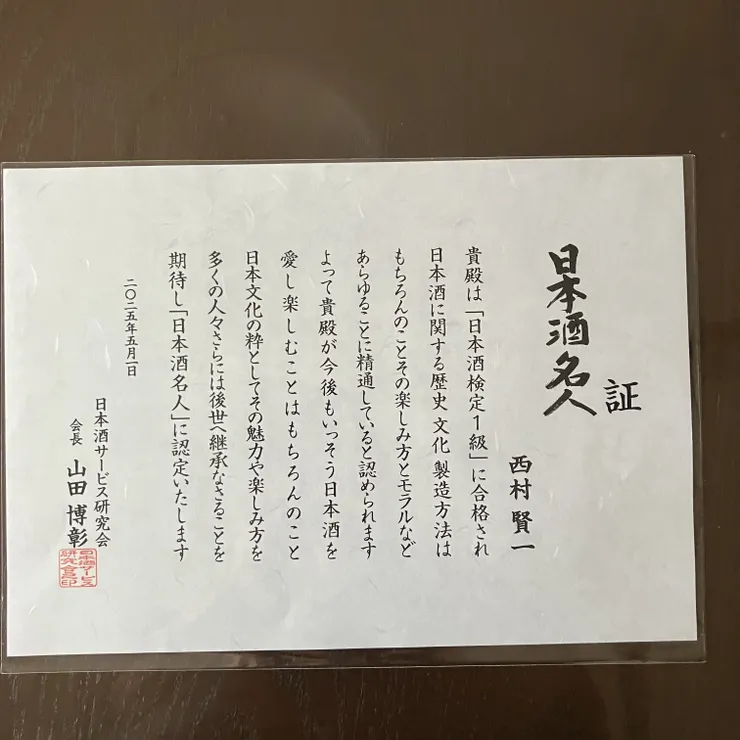 証
日本酒名人
西村 賢一
貴殿は「日本酒検定1級」に合格され
日本酒に関する歴史 文化 製造方法は
もちろんのことその楽しみ方とモラルなど
あらゆることに精通していると認められます
よって貴殿が今後もいっそう日本酒を
愛し楽しむことはもちろんのこと
日本文化の粋としてその魅力や楽しみ方を
多くの人々さらには後世へ継承なさることを
期待し「日本酒名人」に認定いたします
二〇二五年五月一日
日本酒サービス研究会
会長 山田 博彰
日本酒サービス
研究会之印